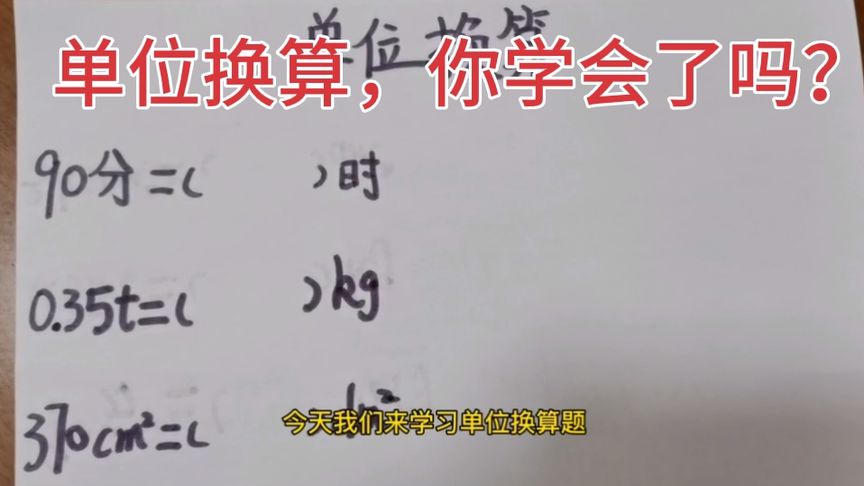 单位换算
单位换算，你学会了吗？
90分=( )时
0.35t=( )kg
370cm²=(
今天我们来学习单位换算题